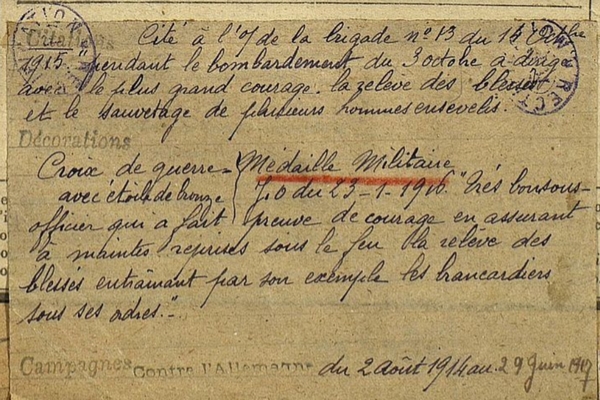 Citations
Cité à l'O/ de la brigade n° 13 du 16 Octbre
1915. pendant le bombardement du 3 octbre à dirigé
avec le plus grand courage la relève des blessés
et le sauvetage de plusieurs hommes ensevelis.
Décorations
Croix de guerre
avec étoile de bronze
Médaille Militaire
J.O du 23-1-1916. "Très bon sous-
officier qui a fait preuve de courage en assurant
à maintes reprises sous le feu la relève des
blessés entraînant par son exemple les brancardiers
sous ses ordres."
Campagnes Contre l'Allemagne du 2 Août 1914 au 29 Juin 1917